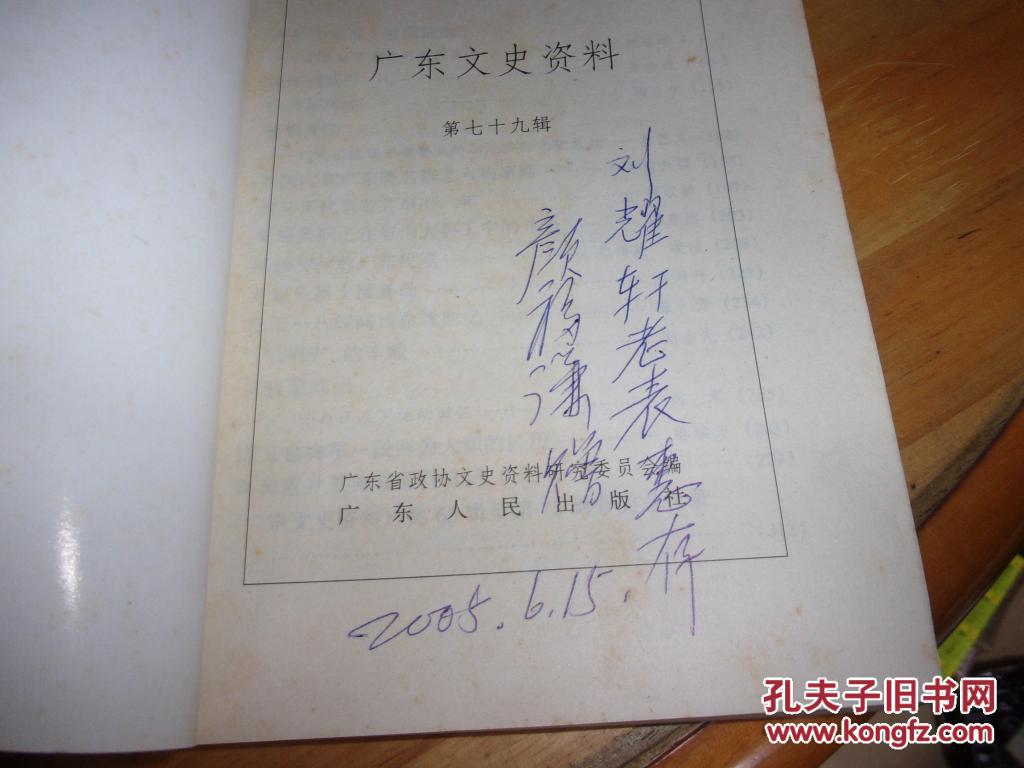 广东文史资料
第七十九辑
刘耀轩老表惠存
颜福潇赠
广东省政协文史资料研究委员会编
广东人民出版社
2005.6.15.
孔夫子旧书网
www.kongfz.com